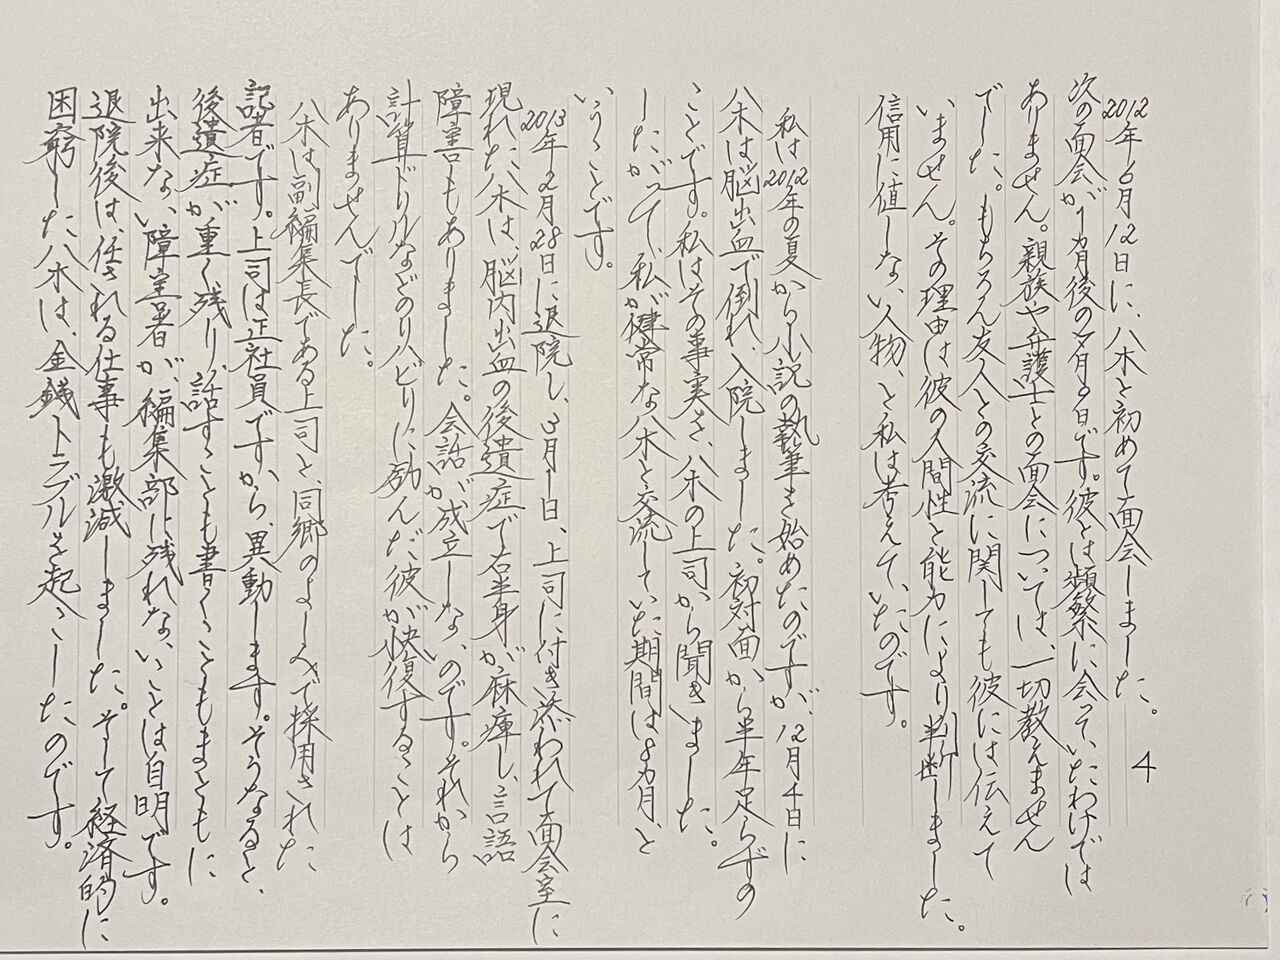 4
2012年6月12日に、八木と初めて面会しました。
次の面会が1ヵ月後の7月9日です。彼とは頻繁に会っていたわけでは
ありません。親族や弁護士との面会については、一切教えません
でした。もちろん友人との交流に関しても彼には伝えて
いません。その理由は彼の人間性と能力により判断しました。
信用に値しない人物、と私は考えていたのです。
私は2012年の夏から小説の執筆を始めたのですが、12月4日に
八木は脳出血で倒れ、入院しました。初対面から半年足らずの
ことです。私はその事実を、八木の上司から聞きました。
したがって、私が健常な八木と交流していた期間は8ヵ月、と
いうことです。
2013年2月28日に退院し、3月1日、上司に付き添われて面会室に
現れた八木は、脳内出血の後遺症で右半身が麻痺し、言語
障害もありました。会話が成立しないのです。それから
計算ドリルなどのリハビリに励んだ彼が快復することは
ありませんでした。
八木は副編集長である上司と、同郷のよしみで採用された
記者です。上司は正社員ですから、異動します。そうなると、
後遺症が重く残り、話すことも書くこともまともに
出来ない障害者が、編集部に残れないことは自明です。
退院後は、任される仕事も激減しました。そして経済的に
困窮した八木は、金銭トラブルを起こしたのです。